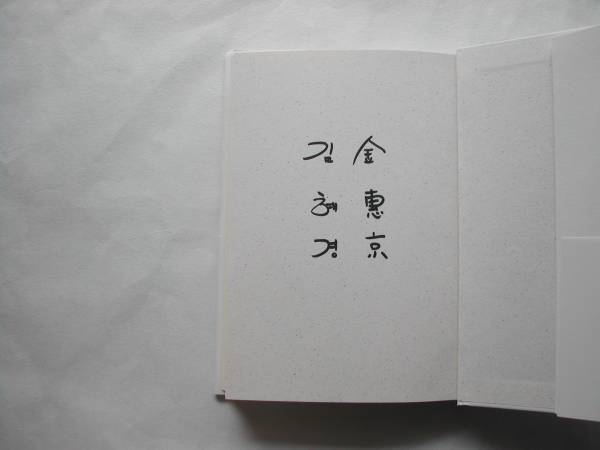 김 金
혜 惠
경 京